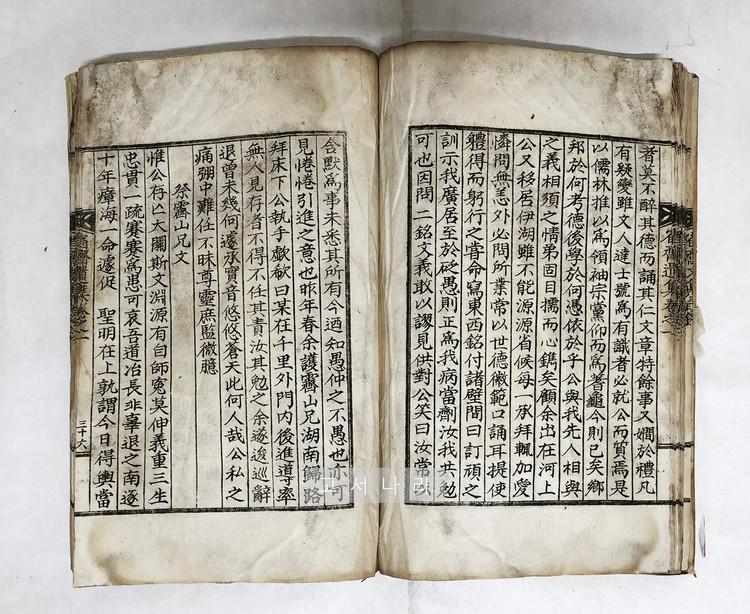 者莫不醉其德而誦其仁文章特餘事又嫺於禮凡
有疑變雖文人達士號爲有識者必就公而質焉是
以儒林推以爲領袖宗黨仰而爲蓍龜今則已矣鄉
邦於何考德後學於何憑依於乎公與我先人相與
之義相須之情弟固目擩而心鐫矣顧余出在河上
公又移居伊湖雖不能源源省候每一承拜輒加愛
憐問無恙外必問所業常以世德徽範口誦耳提使
軆得而躬行之嘗命寫東西銘付諸壁間曰訂頑之
訓示我廣居至於砭愚則正爲我病當劑汝我共勉
可也因問二銘文義敢以謬見供對公笑曰汝常以
含默爲事未悉其所有今迺知愚仲之不愚也亦可
見惓惓引進之意也昨年春余護霽山兄湖南歸路
拜床下公執手歔欷曰某在千里外門內後進導率
無人見存者不得不任其責汝其勉之余遂逡巡辭
退曾未幾何遽承實音悠悠蒼天此何人哉公私之
痛弸中難任不昧尊靈庶監微臆
祭霽山兄文
惟公存亡大關斯文淵源有自師寃莫伸義重三生
忠貫一疏蹇蹇爲愚可哀吾道冶長非辜退之南逐
十年瘴海一命遽促 聖明在上孰謂今日得輿當
三十六
고서나라